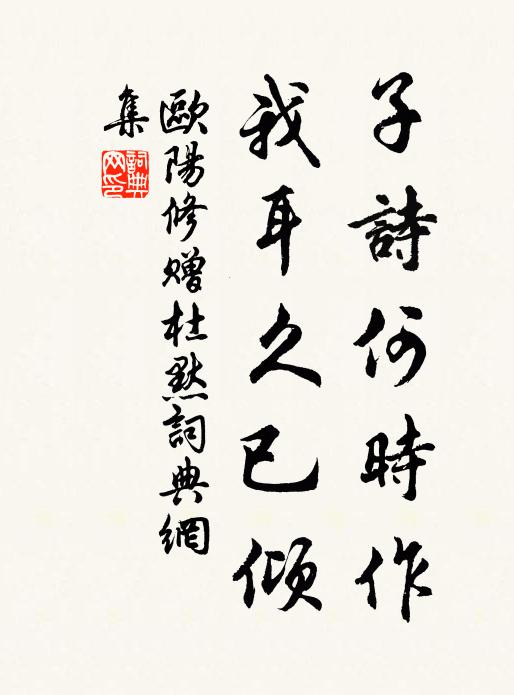 子詩何時作
我耳久已傾
歐陽修贈杜默詞典網
集
詞典
网印